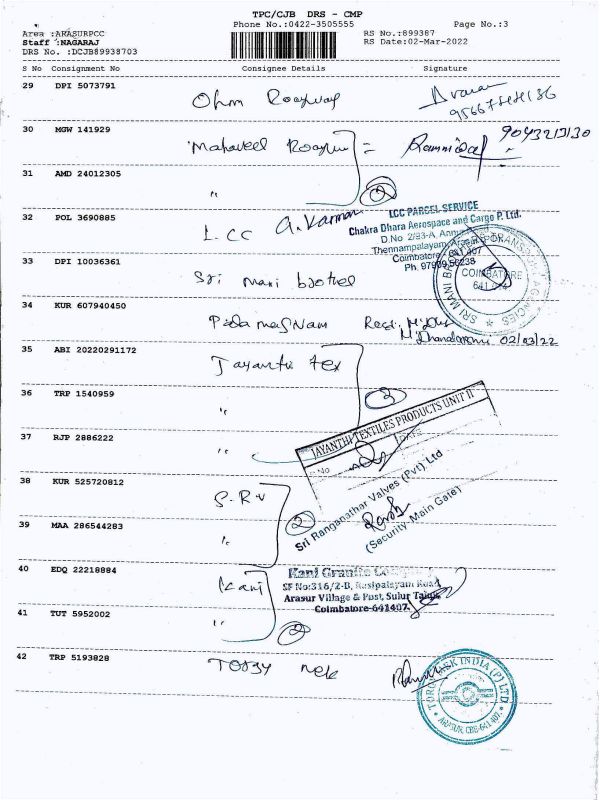 TPC/CJB DRS - CMP
Phone No.:0422-3505555 Page No.:3
Area :ARASURPCC RS No.:899387
Staff :NAGARAJ RS Date:02-Mar-2022
DRS No. :DCJB89938703
S No Consignment No Consignee Details Signature
29 DPI 5073791
Ohm Roadway
30 MGW 141929 9043213130
Mahaveel =
31 AMD 24012305
"
2
32 POL 3690885
LCC
LCC PARCEL SERVICE
Chakra Dhara Aerospace and Cargo P. Ltd.
D.No 2/93-A,
Thennampalayam
Coimbatore - 641 407
Ph.
SRI MANI TRANSPORT AGENCIES
COIMBATORE
33 DPI 10036361
Sri mani
34 KUR 607940450
02/03/22
35 ABI 20220291172
Jayanthi tex
36 TRP 1540959
"
3
JAYANTHI TEXTILES PRODUCTS UNIT II
No DATE
37 RJP 2886222
"
38 KUR 525720812
S.R.V
Sri Ranganathar Valves (Pvt) Ltd
(Security-Main Gate)
39 MAA 286544283
"
2
40 EDQ 22218884
Kani
Kani Granite
SF No:316/2-B, Rasipalayam Road
Arasur Village & Post, Sulur Taluk
Coimbatore-641407.
41 TUT 5952002
"
2
42 TRP 5193828
INDIA (P) LTD
ARASUR, CBE-641 407.